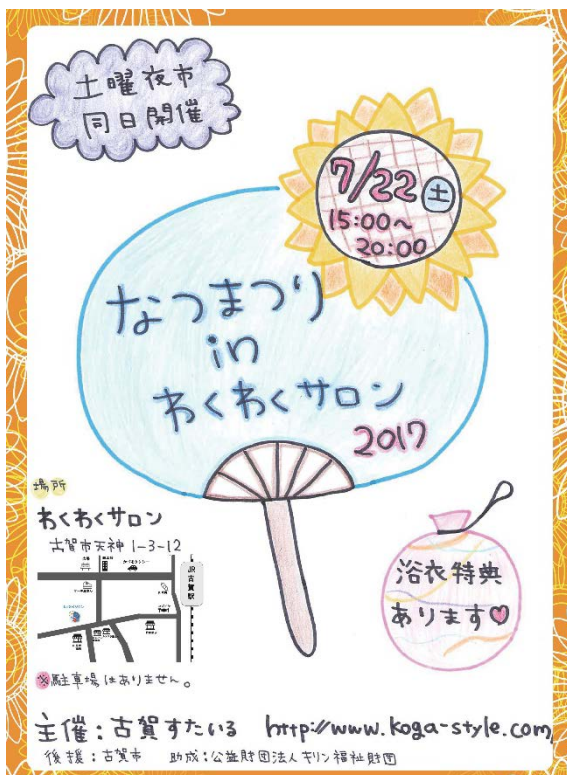 土曜夜市
同日開催
7/22 土
15:00~
20:00
なつまつり
in
わくわくサロン
2017
場所
わくわくサロン
古賀市天神 1-3-12
JR古賀駅
浴衣特典
あります♡
※駐車場はありません。
主催:古賀すたいる http://www.koga-style.com
後援:古賀市 助成:公益財団法人キリン福祉財団